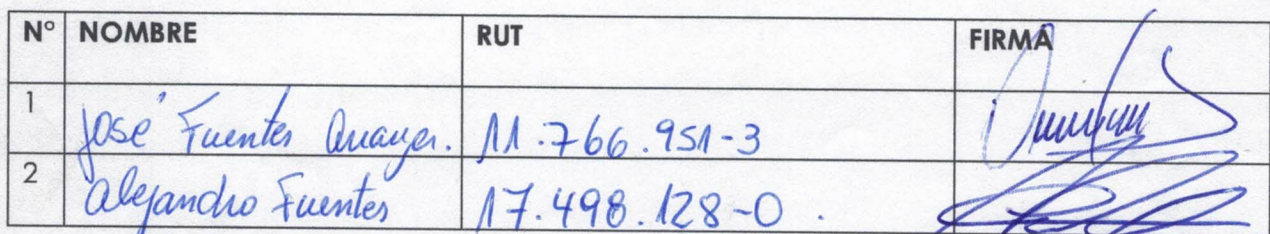 N° NOMBRE RUT FIRMA
1 José Fuentes 11.766.951-3
2 Alejandro Fuentes 17.498.128-0.